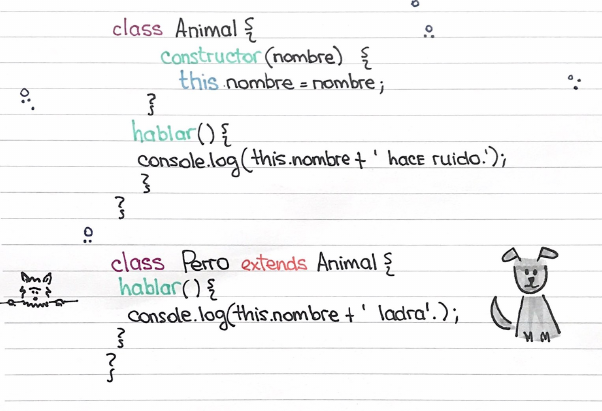 class Animal {
constructor(nombre) {
this.nombre = nombre;
}
hablar() {
console.log(this.nombre + ' hace ruido.');
}
}
class Perro extends Animal {
hablar() {
console.log(this.nombre + ' ladra'.);
}
}